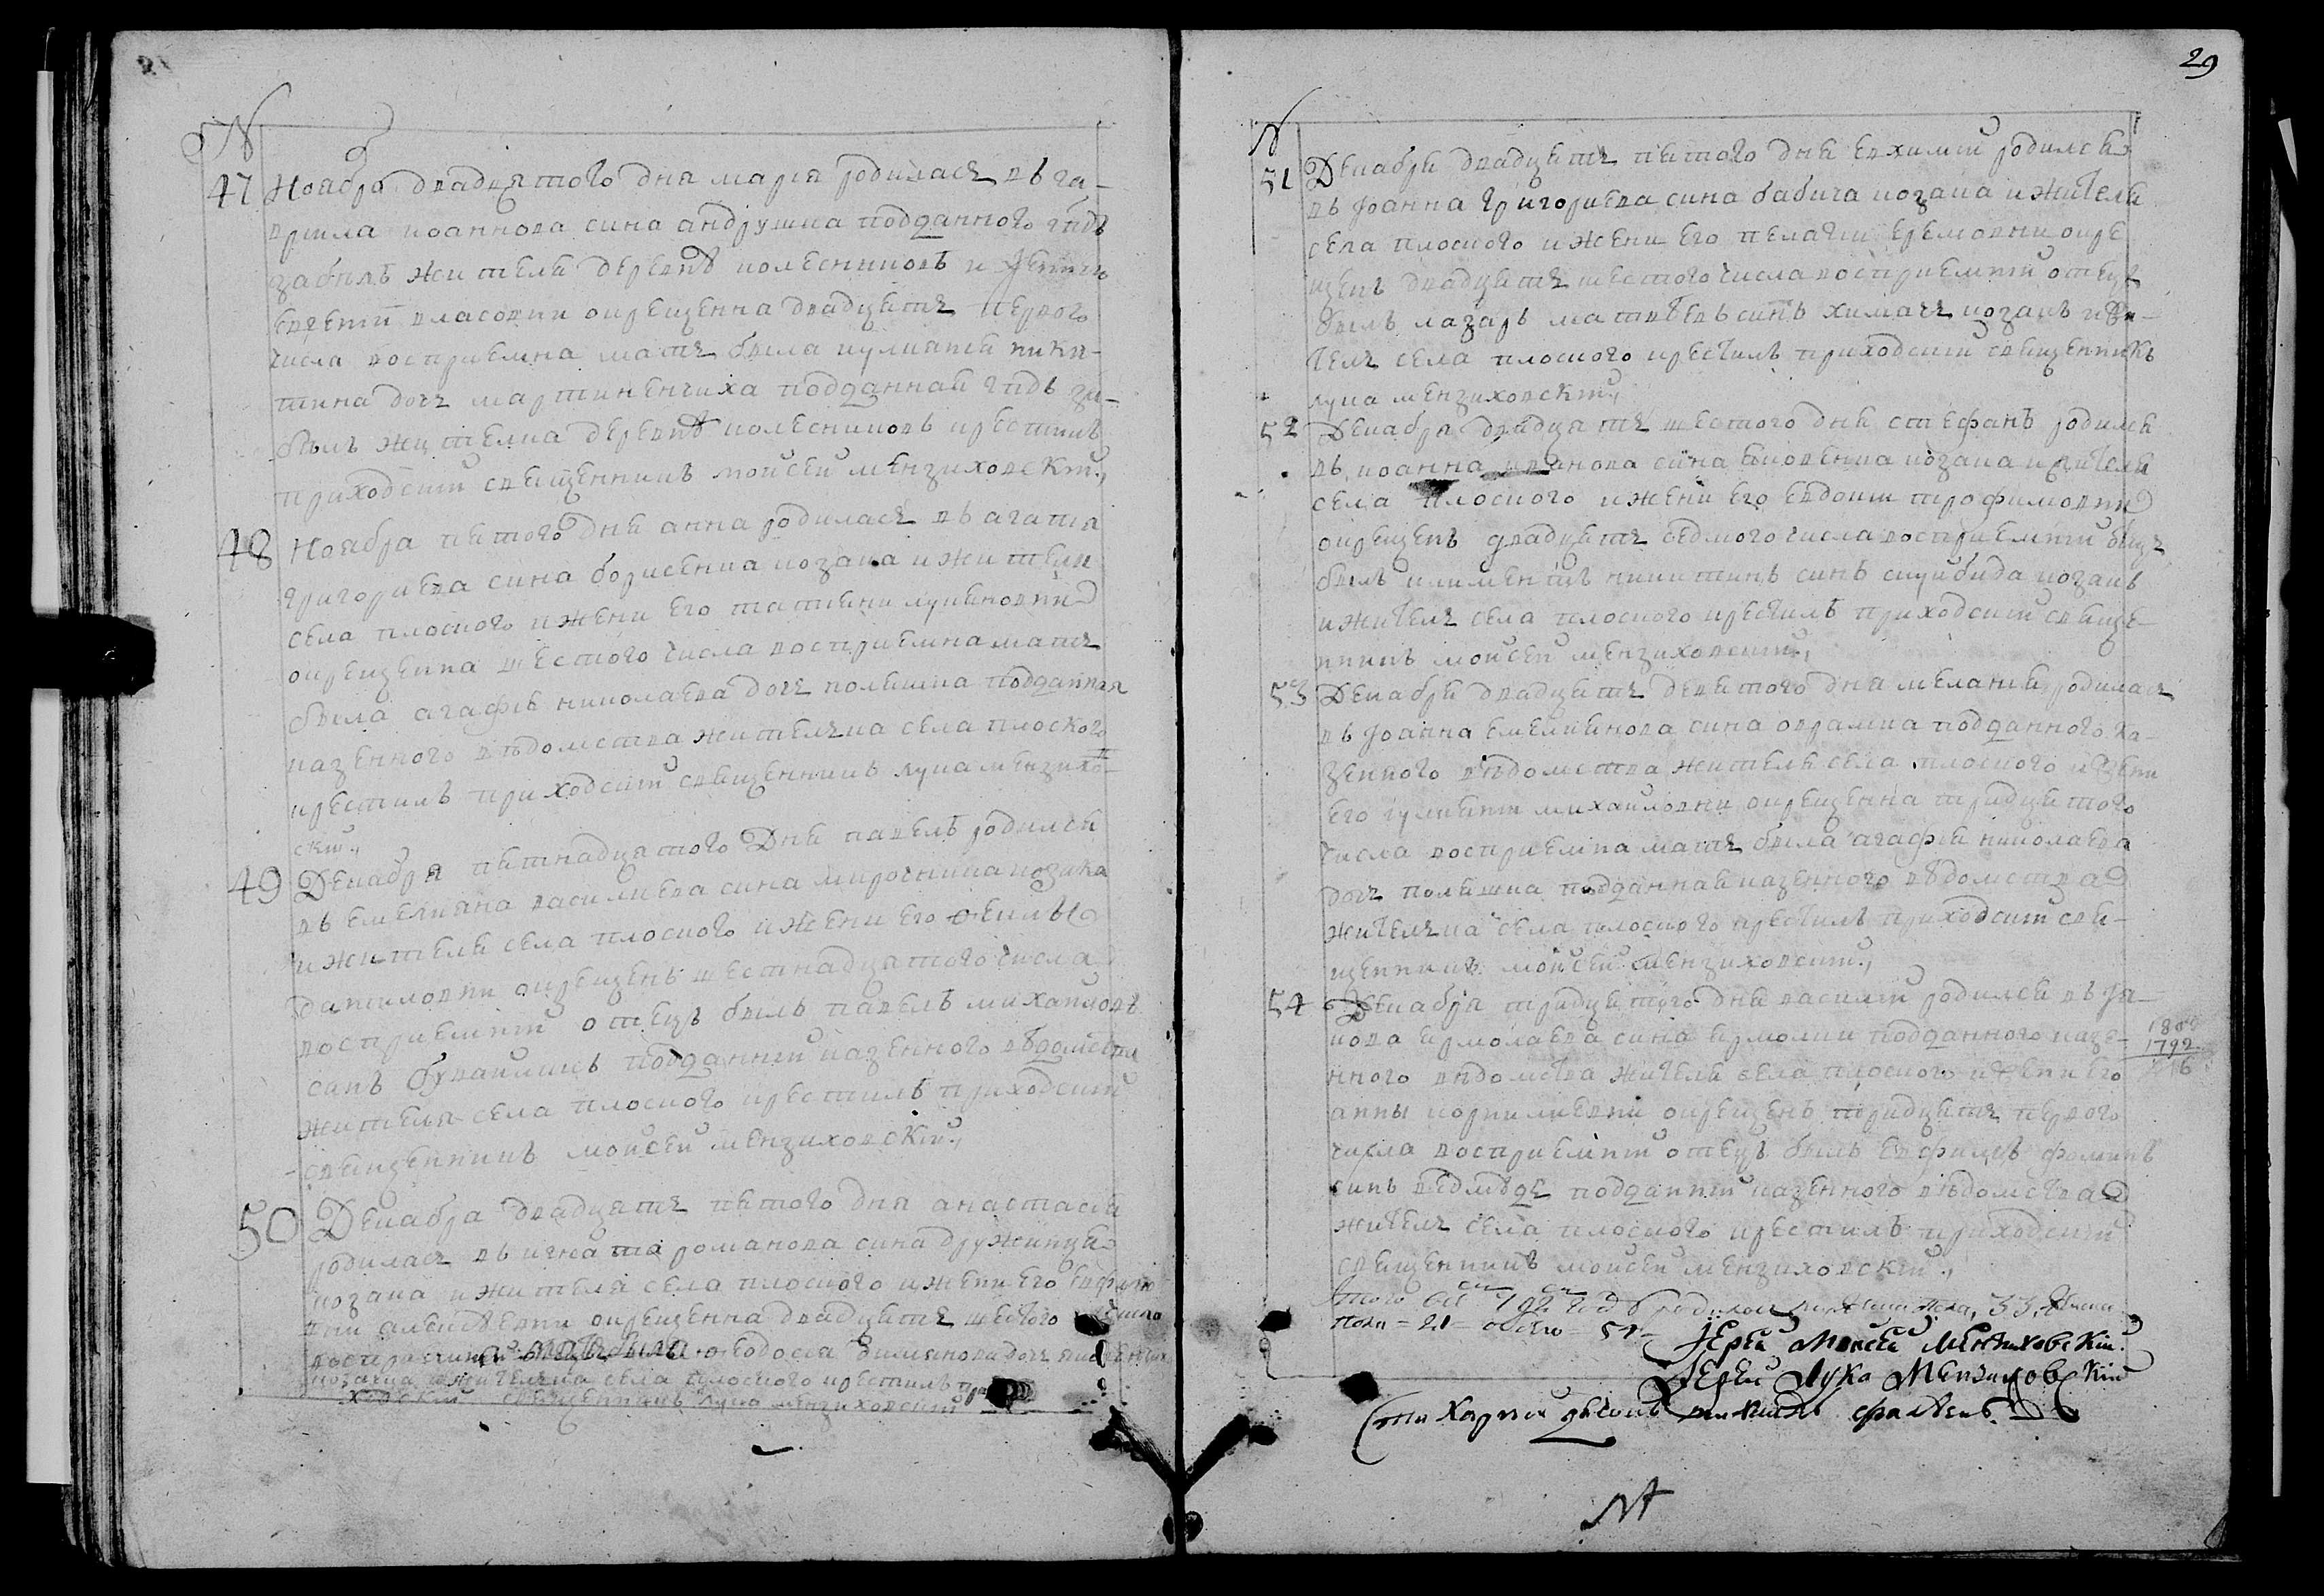 N
47 Ноября двадцятого дня мария родилась въ га-
врила иоаннова сина андрушка подданного гпдъ
забилъ жителя деревнѣ колесниковъ и жени его
евгенiи власовни окрещенна двадцять первого
числа восприемна мать была иулиания ники-
тина дочь мартиненчиха подданная гпдъ за-
билъ жителка деревнѣ колесниковъ крестилъ
приходскiй священникъ мойсей мензиховскiй,
48 Ноября пятого дня анна родилась въ агапия
григориева сина борисенка козака и жителя
села плоского и жени его татияни лукяновни
окрещенна шестого числа восприемна мать
была агафия николаева дочь полякика подданная
казенного вѣдомства жителька села плоского
крестилъ приходскiй священникъ лука мензихо-
вскiй,
49 Декабря пятнадцятого Дня павелъ родился
въ емелияна василиева сина мирочника козака
и жителя села плоского и жени его феклы
даниловни окрещенъ шестнадцатого числа
восприемнiй отецъ билъ павелъ михайловъ
синъ подданнiй казенного вѣдомства
житель села плоского крестилъ приходскiй
священникъ мойсей мензиховскiй,
50 Декабря двадцять пятого дня анастасия
родилась въ игната романова сина дружинца
козака и жителя села плоского и жени его
алексѣевни окрещенна двадцять шестого числа
мать была феодосия дочь
козачка жителька села плоского крестилъ при-
ходскiй священникъ лука мензиховскiй
29
N
51 Декабря двадцять пятого дня евхимiй родился
въ Iоанна григориева сина бабича козака и жителя
села плоского и жени его пелагiи еремовни окре
щенъ двадцять шестого числа восприемнiй отецъ
билъ лазарь матвѣевъ синъ химачъ козакъ и жи-
тель села плоского крестилъ приходскiй священникъ
лука мензиховскiй,
52 Декабря двадцять шестого дня стефанъ родился
въ иоанна иванова сина яковенка козака и жителя
села плоского и жени его евдокiи трофимовни
окрещенъ двадцять седмого числа восприемнiй отецъ
билъ климентiй никитинъ синъ скрибида козакъ
и житель села плоского крестилъ приходскiй свяще-
нникъ мойсей мензиховскiй,
53 Декабря двадцять девятого дня мелания родилась
въ Iоанна емелиянова сина аврамка подданного ка-
зенного вѣдомства жителя села плоского и жени
его иулиянiи михайловни окрещенна тридцятого
числа восприемна мать была агафия николаева
дочь полякика подданная казенного вѣдомства
жителька села плоского крестилъ приходскiй свя-
щенникъ мойсей мензиховскiй,
54 Декабря тридцятого дня василiй родился въ Iа-
кова ермолаева сина ермолки подданного казе-
нного вѣдомства жителя села плоского и жени его
анны корнилиевни окрещенъ тридцять первого
числа восприемнiй отецъ билъ евфимъ фоминъ
синъ ведмѣдь подданнiй казенного вѣдомства
житель села плоского крестилъ приходскiй
священникъ мойсей мензиховскiй,
1792
Iерей Моисей Мензиховскiй
Iерей Лука Мензиховскiй